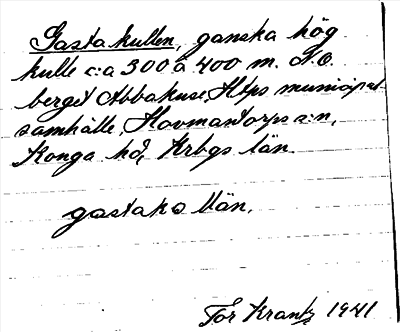 Gastakullen, ganska hög
kulle c:a 300 à 400 m. N.O.
berget Abbakuse, Htps municipal
samhälle, Hovmantorps s:n,
Konga hd, Krbgs län.
gastakə llän.
Tor Krantz 1941